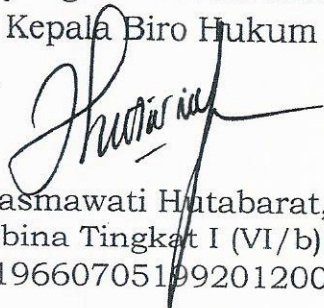 Kepala Biro Hukum
asmawati Hutabarat,
bina Tingkat I (VI/b)
19660705199201200